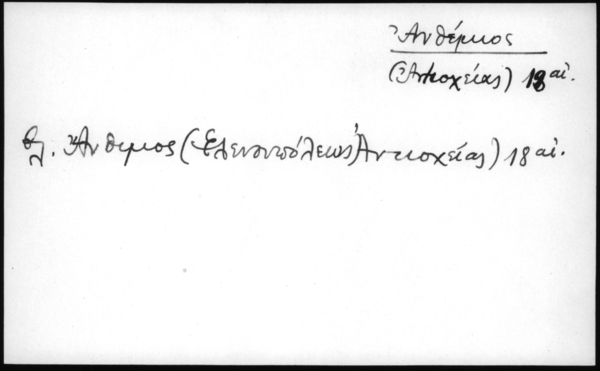 Ἀνθέμιος
(Ἀντιοχείας) 18 αἰ.
βλ. Ἄνθιμος (Ἑλενουπόλεως, Ἀντιοχείας) 18 αἰ.